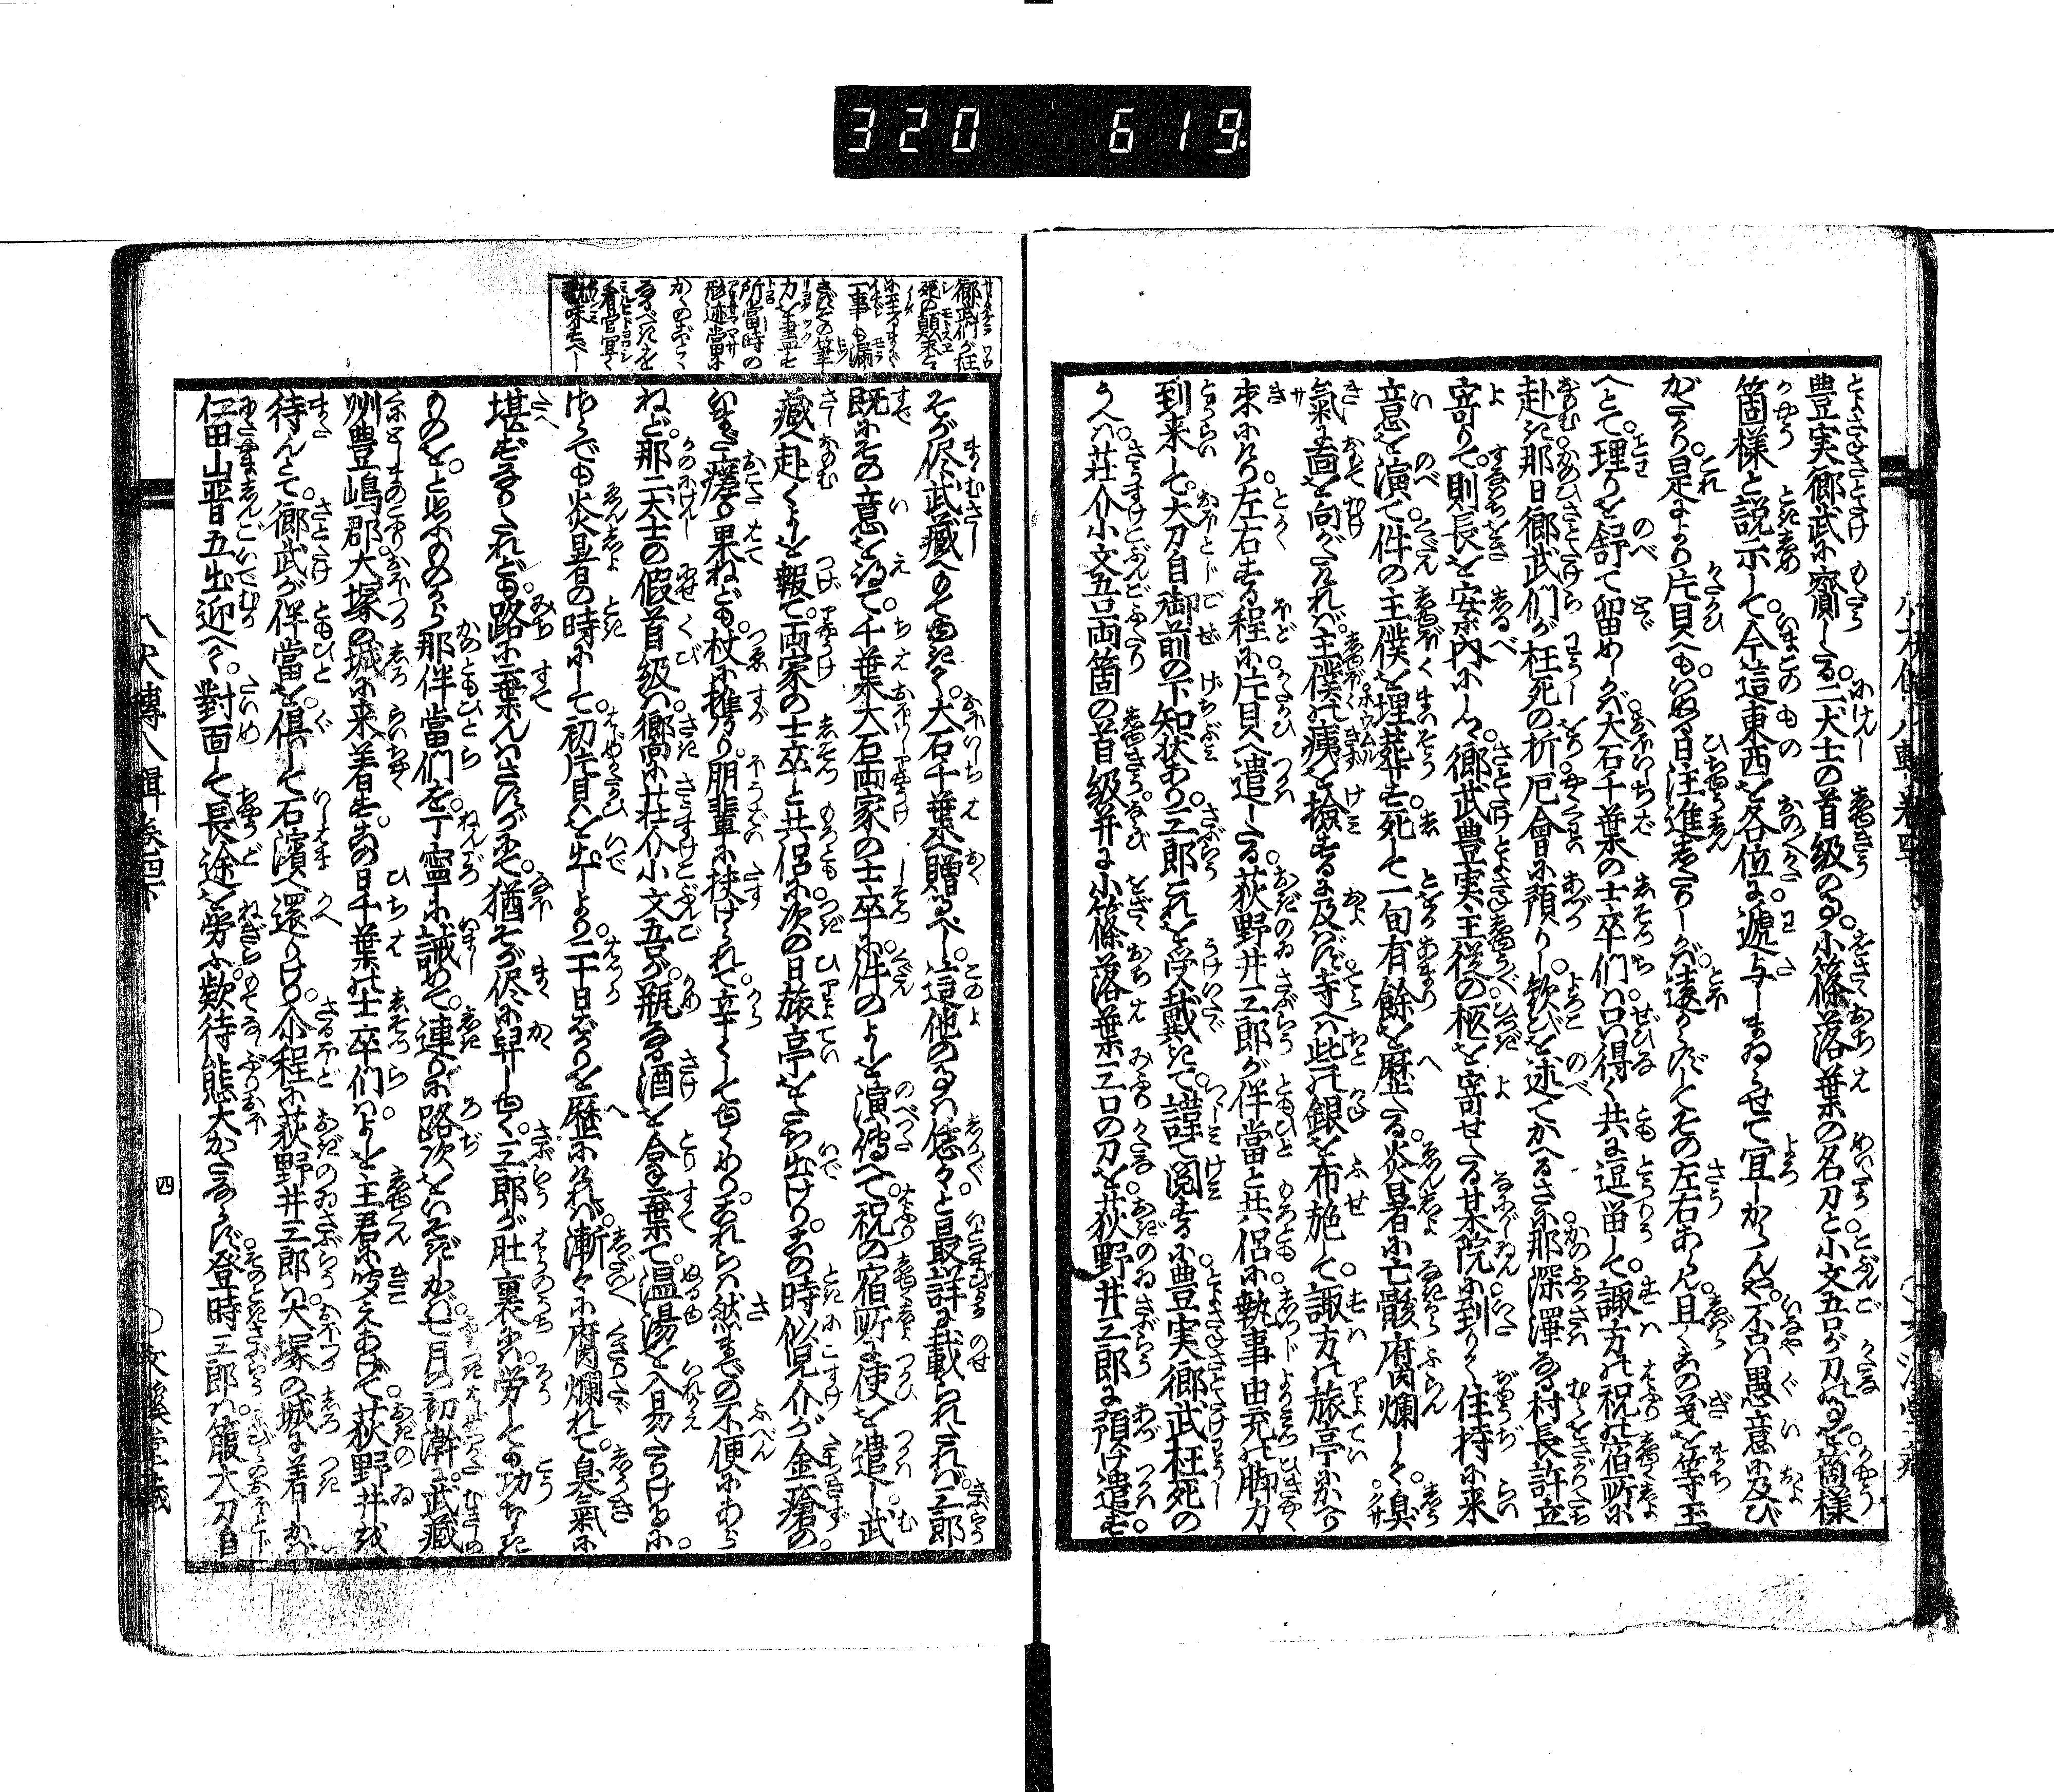 320 619
豊実郷武に齎したる。二犬士の首級のみ。小篠落葉の名刀と小文吾が刀のみを。箇様
箇様と説示して。今這東西を各位に。逓与しまゐらせて宜しからんや。不は愚意に及び
がたかり。是により片貝へも。いぬる日注進したりしが。遠からずしてその左右あらん。且くその義を等玉
へとて。理りを舒て留めしが。大石千葉の士卒們は得く共に逗留して。諏方の祝の宿所に
赴き。那日郷武們が枉死の折。厄會に預りし。歓びを述てかへるさに。那深澤なる村長許立
寄りて。則長を案内にしつ。郷武豊実主従の柩を寄せたる某院に到りて。住持に来
意を演て。件の主僕を埋葬す。死して一旬有餘を歴たる。炎暑に亡骸腐爛して。臭
氣に面を向がたければ。主僕の痍を撿るに及ばず。寺へは些の銀を布施して。諏方の旅亭にかへり
来にけり。左右する程に。片貝へ遣したる。荻野井三郎が伴當と共侶に。執事由充の脚力
到来して。大刀自御前の下知状あり。三郎これを受戴きて。謹て閲するに。豊実郷武枉死の
うへは。荘介小文吾両箇の首級并に小篠落葉三口の刀を。荻野井三郎に預け遣す。
そが侭武藏へもてゆきて。大石千葉へ贈るべし。這他の事は倐々と最詳に載られたれば。三郎
既にその意を得て。千葉大石両家の士卒に。件のよしを演傳へて。祝の宿所に使を遣し。武
藏へ赴くよしを報て。両家の士卒と共侶に。次の日旅亭をたち出けり。その時倪介が金瘡の
いまだ瘥り果ねども。杖に携り。朋輩に扶けられて。辛くしてゆくめり。これらは然までの不便にあら
ねど。那二犬士の假首級は。郷に荘介小文吾が。瓶なる酒を合棄て。温湯を入易たりけるに。
さらでも炎暑の時にして。初片貝を出しより。二十日あまりを歴にければ。漸々に腐爛れて。臭氣に
堪ずなりしかども。路に棄んはさすがにて。猶そが侭に舁してゆく。三郎が肚裏は。労して功なき
ものを。と思ふものから那伴當們を。丁寧に誡めて。連りに路次をいそぎしかば。七月の初澣に。武藏
州豊嶋郡。大塚の城に来着す。この日千葉の士卒們は。よしを主君に聞えあげて。荻野井を
待んとて。郷武が伴當を。倶して石濱へ還りけり。介程に荻野井三郎は。大塚の城に着しかば。
仁田山晋五出迎へて。對面して長途を労ふ。欵待態大かたならず。登時三郎は。箙大刀自
郷武們が枉
死の顛末は
一事も漏
さず。その筆
力を盡せ
所當時の
形迹當に
かくのごとく
なるべきを
看官宜く
玩味すべし
八犬傳八輯 巻四下
四
文溪堂藏